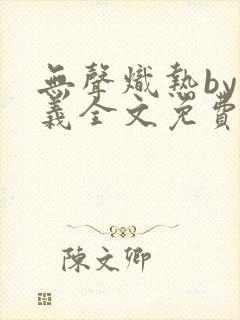 無聲熾熱by
義全文免費
陳文卿